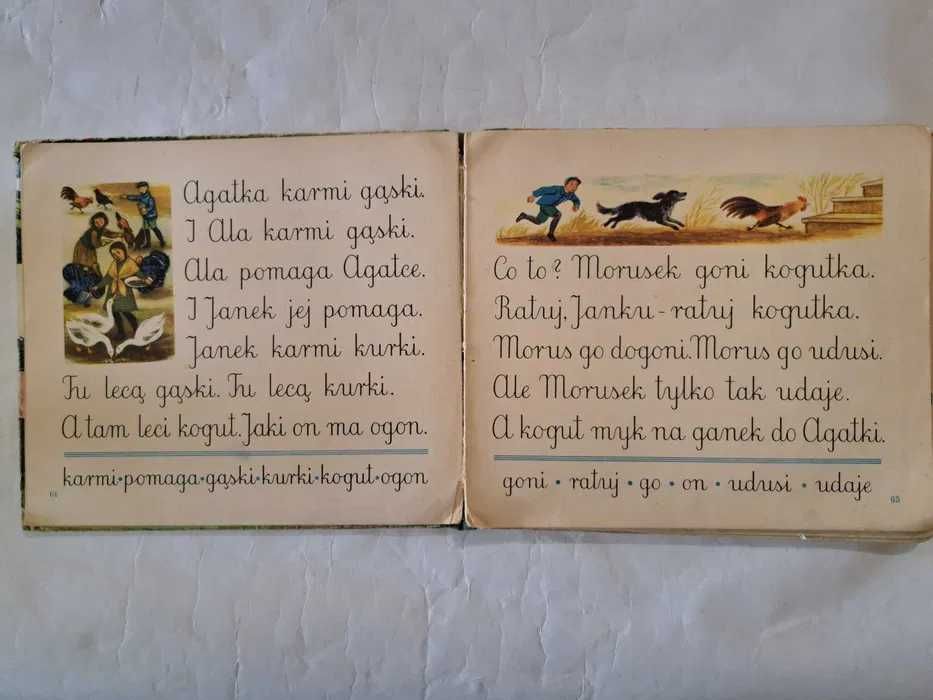 Agatka karmi gąski.
I Ala karmi gąski.
Ala pomaga Agatce.
I Janek jej pomaga.
Janek karmi kurki.
Tu lecą gąski. Tu lecą kurki.
A tam leci kogut. Jaki on ma ogon.
karmi•pomaga•gąski•kurki•kogut•ogon
64
Co to? Morusek goni kogutka.
Ratuj, Janku - ratuj kogutka.
Morus go dogoni. Morus go udusi.
Ale Morusek tylko tak udaje.
A kogut myk na ganek do Agatki.
goni • ratuj • go • on • udusi • udaje
65